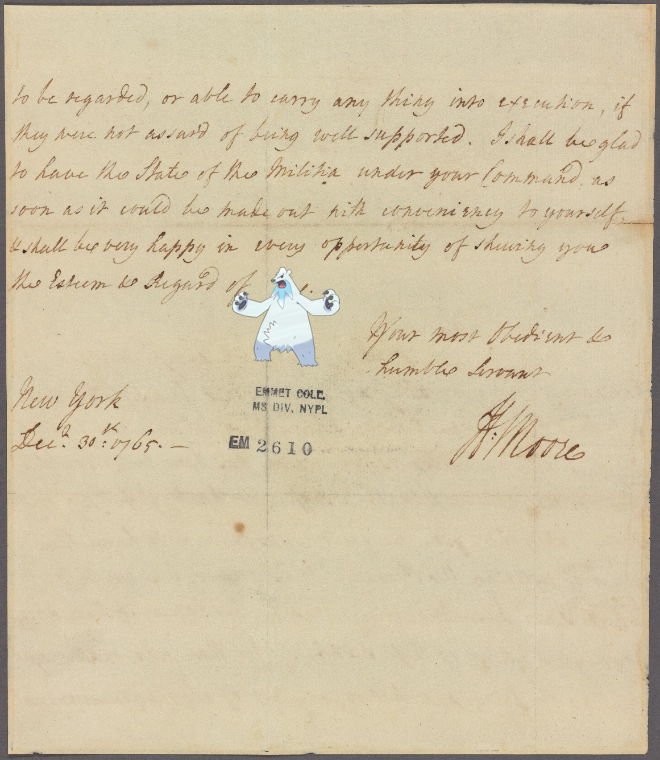 to be regarded, or able to carry any thing into execution, if
they were not assurd of being well supported. I shall be glad
to have the State of the Militia under your Command, as
soon as it could be made out with conveniency to yourself,
& shall be very happy in every opportunity of shewing you
the Esteem & Regard of
Your most Obedient &
humble Servant
EMMET COLL.
MS DIV, NYPL
New York
Decr. 30th. 1765. —
EM 2610
H: Moore